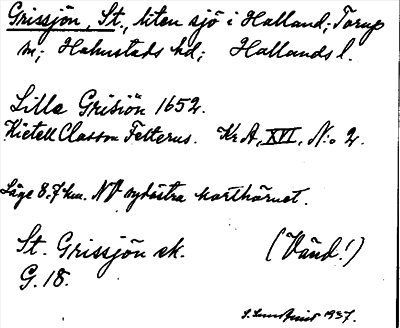 Grissjön, St., liten sjö i Halland; Torup
m; Halmstads hd; Hallands l.
Lilla Grisiön 1652.
Kietell Classon Felterus. Kr. A, XVI, N:o 2.
Läge 8.7 km. NV sydöstra karthörnet.
St. Grissjön ek. (Vänd!)
G. 18.
1937.